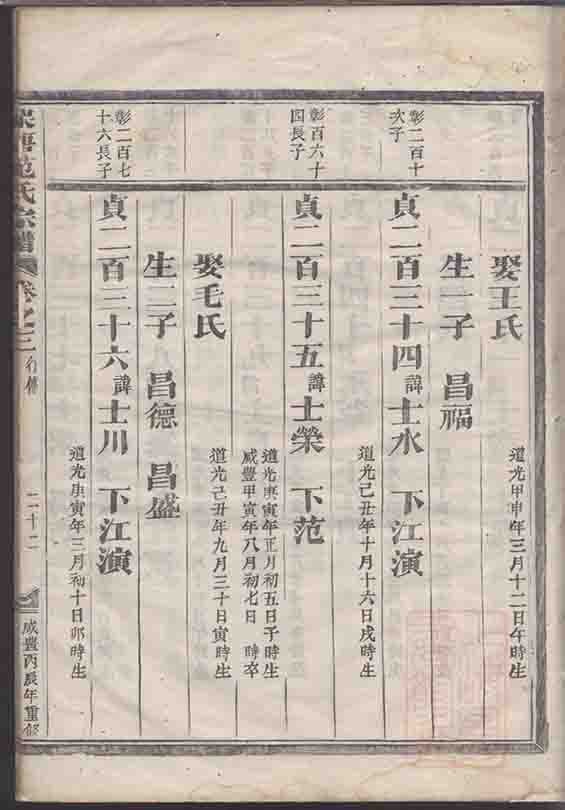 娶王氏
道光甲申年三月十二日午時生
生一子 昌福
彰二百十
次子
貞二百三十四諱士水 下江演
道光己丑年十月十六日戌時生
彰百六十
四長子
貞二百三十五諱士榮 下范
道光庚寅年正月初五日子時生
咸豐甲寅年八月初七日 時卒
娶毛氏
道光己丑年九月三十日寅時生
生二子 昌德 昌盛
彰二百七
十六長子
貞二百三十六諱士川 下江演
道光庚寅年三月初十日卯時生
范氏宗譜 卷之三 行傳 二十二 咸豐丙辰年重修